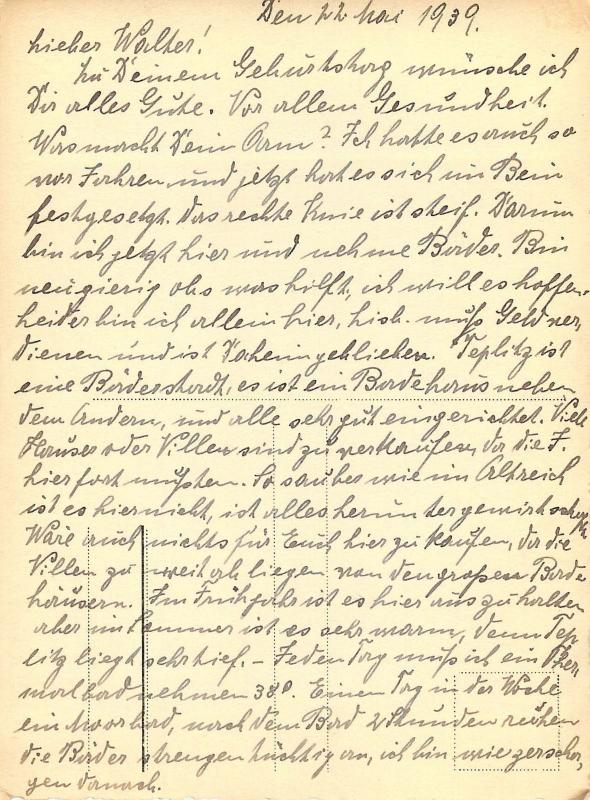 Den 22 Mai 1939.
Lieber Walter!
Zu Deinem Geburtstag wünsche ich
Dir alles Gute. Vor allem Gesundheit.
Was macht Dein Arm? Ich hatte es auch so
vor Jahren, und jetzt hat es sich im Bein
festgesetzt. Das rechte Knie ist steif. Darum
bin ich jetzt hier und nehme Bäder. Bin
neugierig obs was hilft, ich will es hoffen.
Leider bin ich allein hier, muß Geld ver,
dienen und ist Daheim geblieben. Teplitz ist
eine Bäderstadt, es ist ein Badehaus neben
dem Andern, und alle sehr gut eingerichtet. Viele
Häuser oder Villen sind zu verkaufen, da die J.
hier fort mußten. So sauber wie im Altreich
ist es hier nicht, ist alles heruntergewirtschaft
Wäre auch nichts für Euch hier zu kaufen, da die
Villen zu weit ab liegen von den großen Bade
häusern. Im Frühjahr ist es hier auszuhalten
aber im Sommer ist es sehr warm, denn Tep
litz liegt sehr tief. – Jeden Tag muß ich ein Ther
malbad nehmen 38°. Einen Tag in der Woche
ein Moorbad, nach dem Bad 2 Stunden ruhen
die Bäder strengen tüchtig an, ich bin wie zerschla,
gen danach.